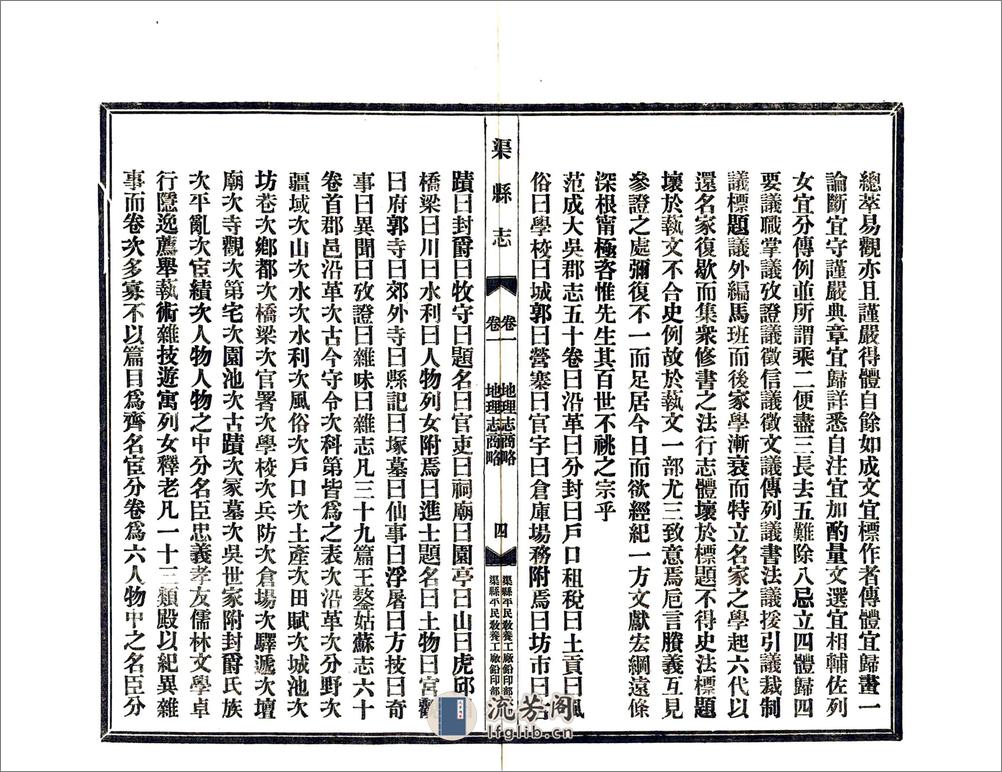 總萃易觀亦且謹嚴得體自餘如成文宜標作者傳體宜歸畫一
論斷宜守謹嚴典章宜歸詳悉自注宜加酌量文選宜相輔佐列
女宜分傳例並所謂乘二便盡三長去五難除八忌立四體歸四
要議職掌議攷證議徵信議徵文議傳列議書法議援引議裁制
議標題議外編馬班而後家學漸衰而特立名家之學起六代以
還名家復歇而集衆修書之法行志體壞於標題不得史法標題
壞於執文不合史例故於執文一部尤三致意焉卮言賸義互見
參證之處彌復不一而足居今日而欲經紀一方文獻宏綱遠條
深根甯極咨惟先生其百世不祧之宗乎
范成大吳郡志五十卷曰沿革曰分封曰戶口租稅曰土貢曰風
俗曰學校曰城郭曰營寨曰官宇曰倉庫場務附焉曰坊市曰古
渠縣志
卷一
地理志商略
四
渠縣平民教養工廠鉛印部
卷一
地理志商略
渠縣平民教養工廠鉛印部
蹟曰封爵曰牧守曰題名曰官吏曰祠廟曰園亭曰山曰虎邱
橋梁曰川曰水利曰人物列女附焉曰進士題名曰土物曰宮觀
曰府郭寺曰郊外寺曰縣記曰塚墓曰仙事曰浮屠曰方技曰奇
事曰異聞曰攷證曰雜味曰雜志凡三十九篇王鏊姑蘇志六十
卷首郡邑沿革次古今守令次科第皆爲之表次沿革次分野次
疆域次山次水次水利次風俗次戶口次土產次田賦次城池次
坊巷次鄉都次橋梁次官署次學校次兵防次倉場次驛遞次壇
廟次寺觀次第宅次園池次古蹟次冢墓次吳世家附封爵氏族
次平亂次宦績次人物人物之中分名臣忠義孝友儒林文學卓
行隱逸薦舉執術雜技遊寓列女釋老凡一十三類殿以紀異雜
事而卷次多寡不以篇目爲齊名宦分卷爲六人物中之名臣分
流芳阁
lfglib.cn